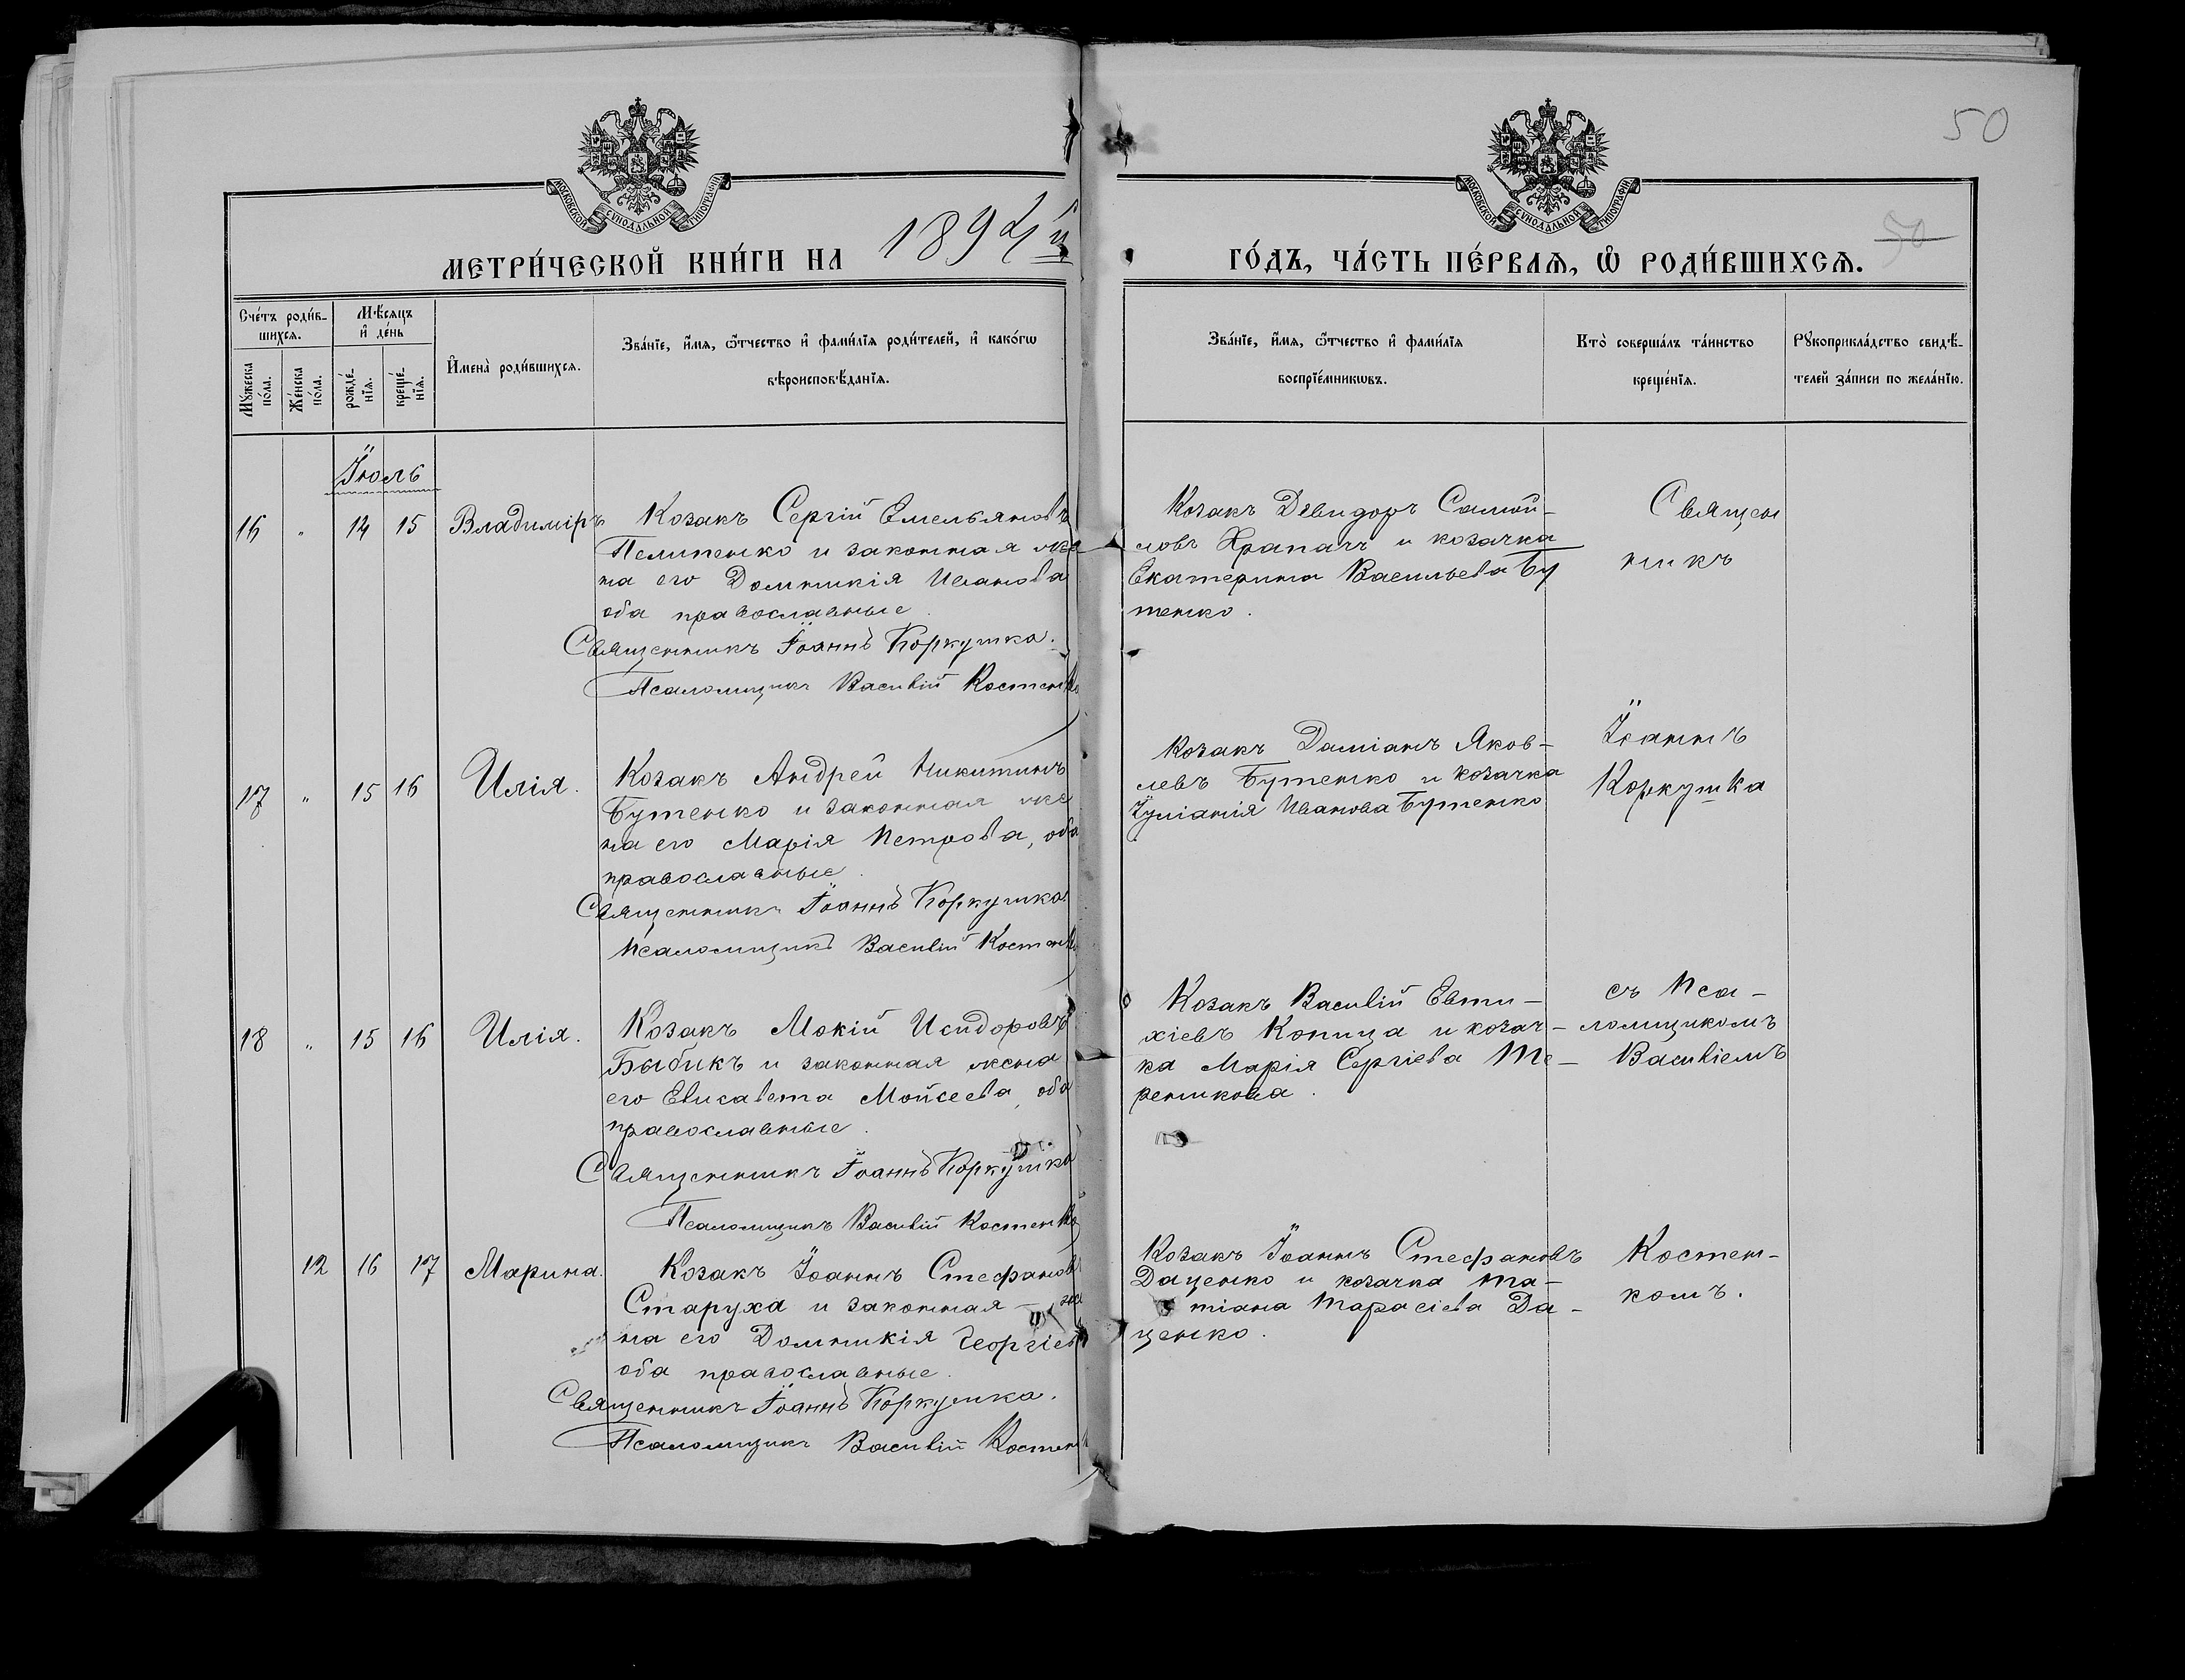 50
МОСКОВСКОЙ СѴНОДАЛЬНОЙ ТИПОГРАФІИ
МОСКОВСКОЙ СѴНОДАЛЬНОЙ ТИПОГРАФІИ
50
МЕТРИ́ЧЕСКОЙ КНИ́ГИ НА 1894й
ГО́ДЪ, ЧА́СТЬ ПЕ́РВАѦ, Ѽ РОДИ́ВШИХСѦ.
Сче́тъ роди́в-
шихсѧ.
Мꙋ́жеска по́ла.
Же́нска по́ла.
Мѣ́сѧцъ и҆ де́нь
рожде́-нїѧ.
креще́-нїѧ.
И҆мена̀ роди́вшихсѧ.
Зва́нїе, и҆́мѧ, ѻ҆́тчество и҆ фами́лїѧ роди́телей, и҆ како́гѡ
вѣроисповѣ́данїѧ.
Зва́нїе, и҆́мѧ, ѻ҆́тчество и҆ фами́лїѧ
воспрїе́мникѡвъ.
Кто̀ соверша́лъ та́инство
креще́нїѧ.
Рꙋкоприкла́дство свидѣ́-
телей за́писи по жела́нїю.
Іюль
16 " 14 15 Владиміръ
Козакъ Сергій Емельяновъ
Пелипенко и законная же
на его Домникія Иванова
оба православные.
Священникъ Іоаннъ Коркушка.
Псаломщикъ Василій Костенко
Козакъ Самой-
ловъ Храпачъ и козачка
Екатерина Васильева Бу
тенко.
Священ
никъ
17 " 15 16 Илія.
Козакъ Андрей Никитинъ
Бутенко и законная же
на его Марія Петрова, оба
православные.
Священникъ Іоаннъ Коркушка
Псаломщикъ Василій Костенко
Козакъ Даміанъ Яков-
левъ Бутенко и козачка
Іуліанія Иванова Бутенко
Іоаннъ
Коркушка
18 " 15 16 Илія.
Козакъ Мокій Исидоровъ
Быбикъ и законная жена
его Елисавета Мойсеева, оба
православные.
Священникъ Іоаннъ Коркушка
Псаломщикъ Василій Костенко
Козакъ Василій Евти-
хіевъ Копица и козач-
ка Марія Сергіева Те-
решкова.
съ Пса-
ломщикомъ
Василіемъ
12 16 17 Марина.
Козакъ Іоаннъ Стефановъ
Старуха и законная – же
на его Домникія Георгіев
оба православные.
Священникъ Іоаннъ Коркушка.
Псаломщикъ Василій Костен
Козакъ Іоаннъ Стефановъ
Даценко и козачка Та-
тіана Тарасіева Да-
ценко.
Костен-
комъ.